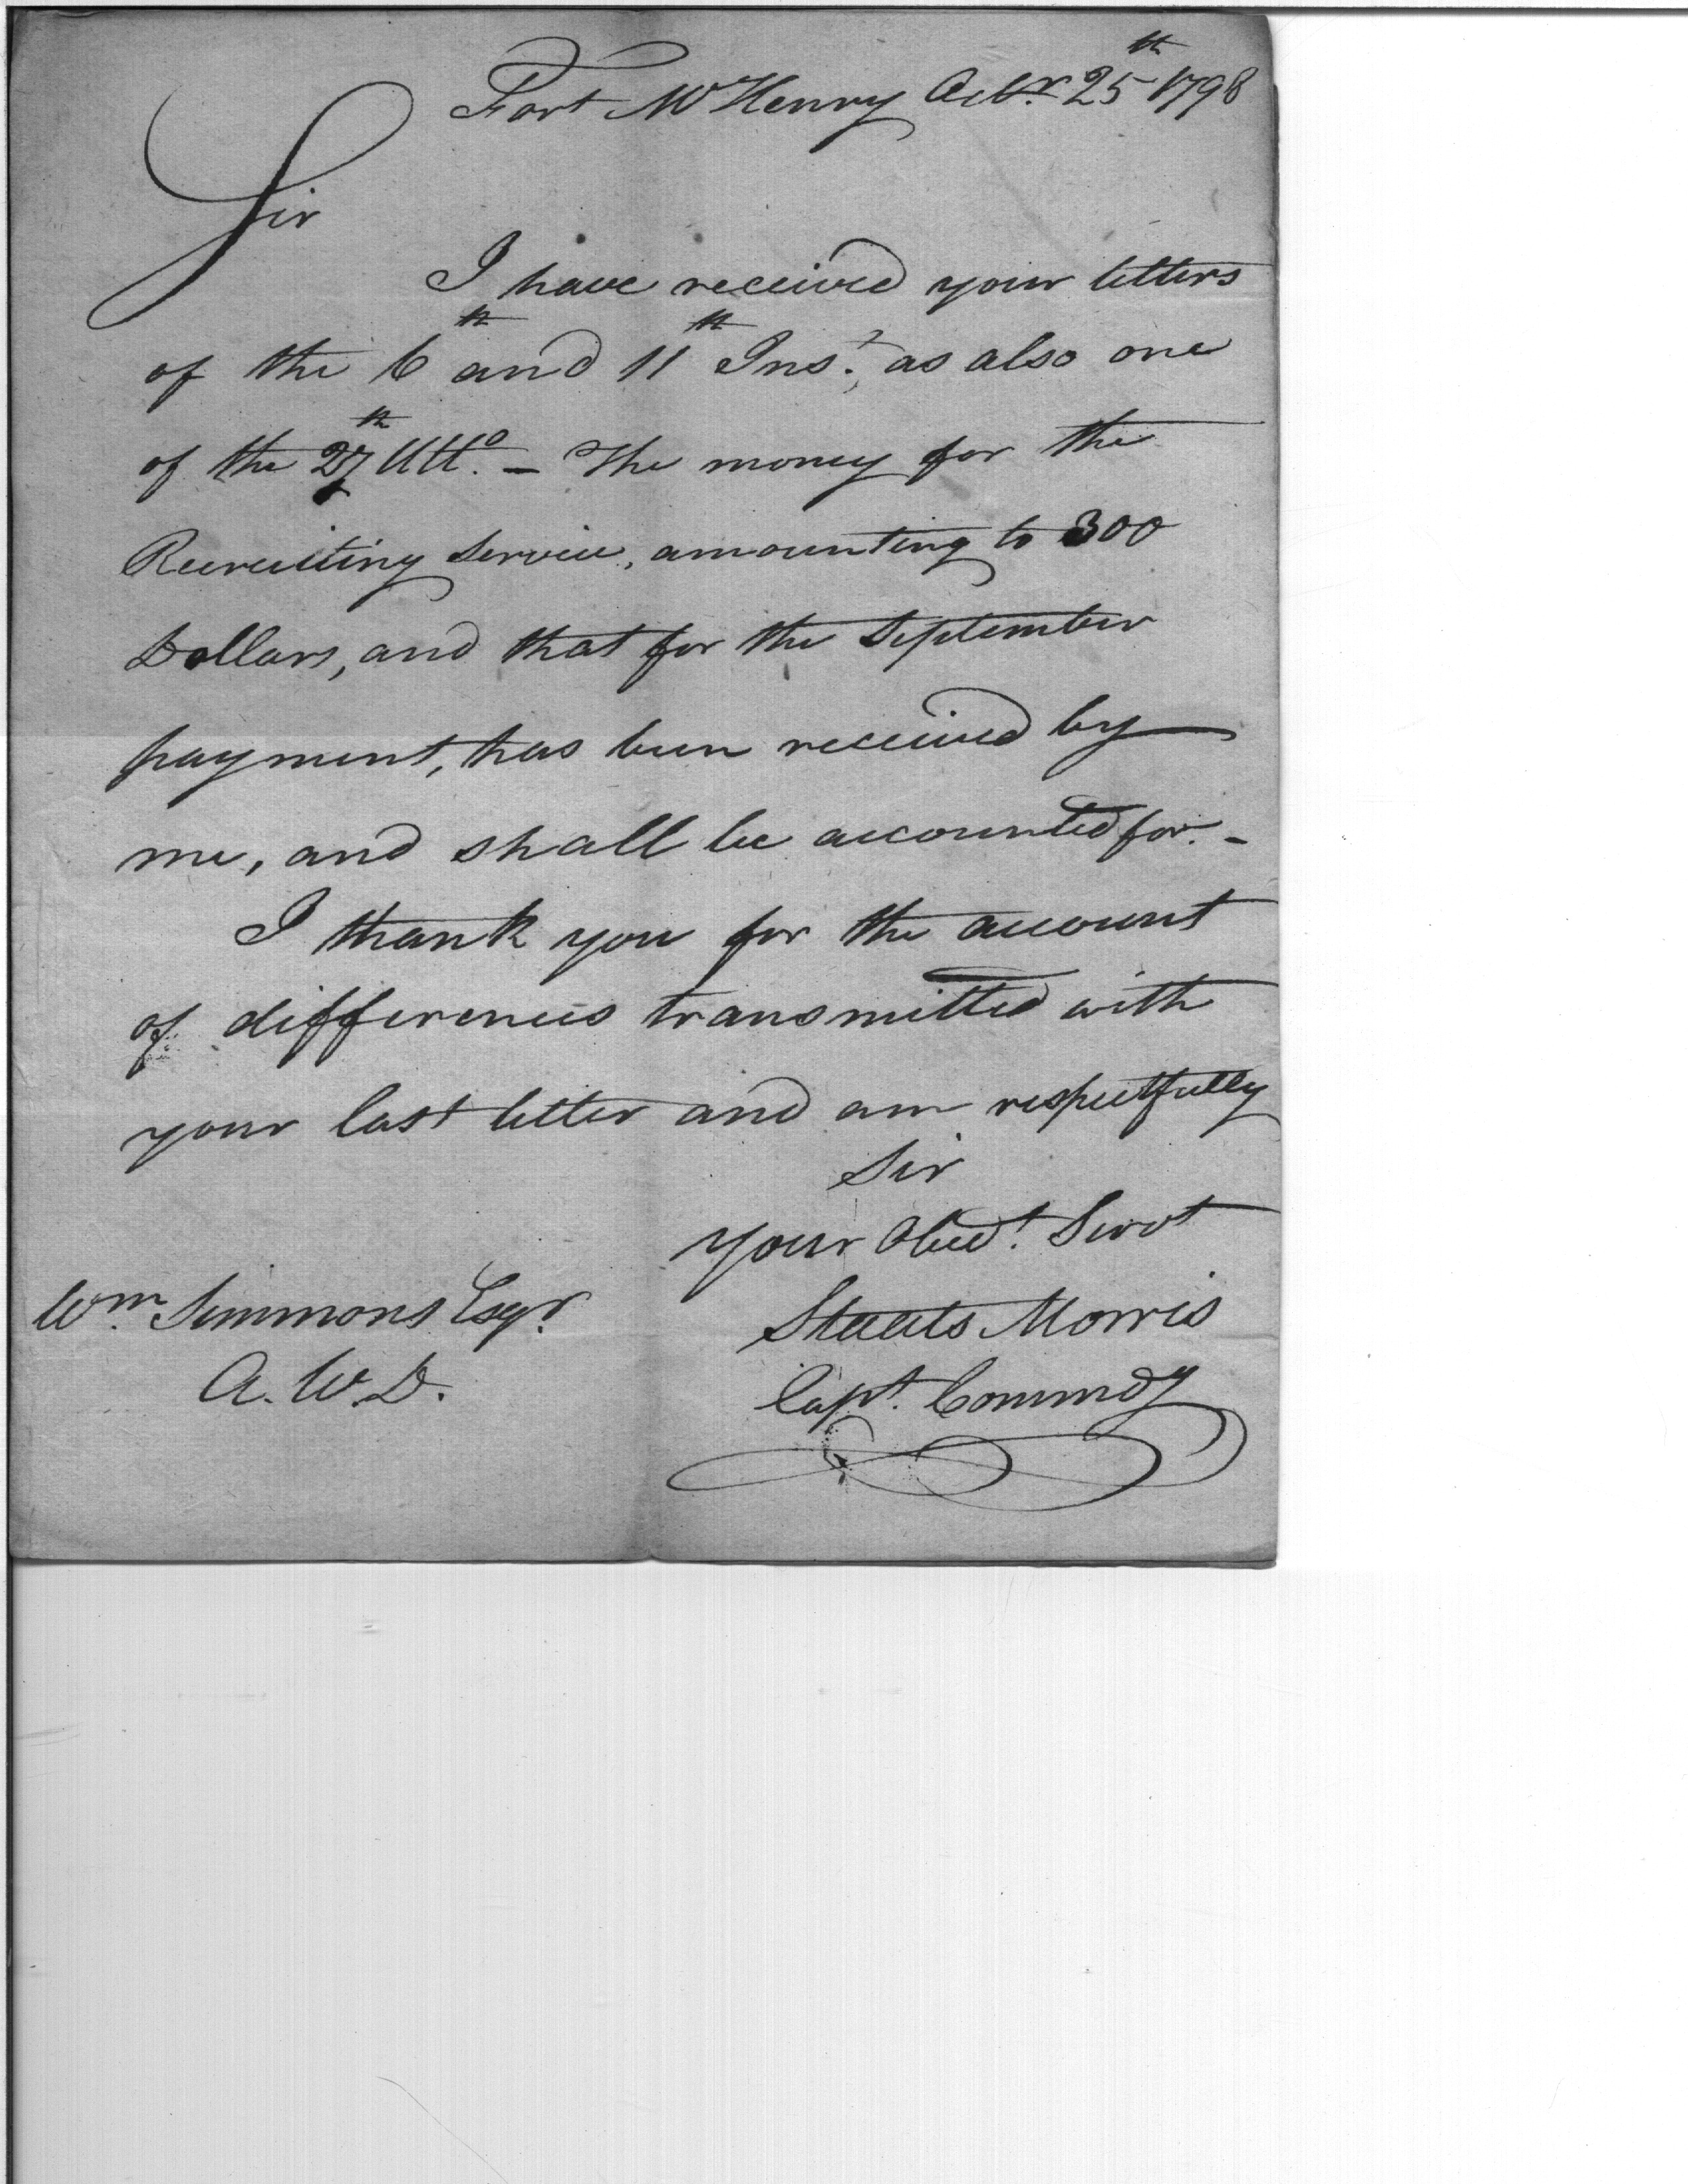 Fort McHenry Octr. 25th 1798
Sir
I have received your letters
of the 6th and 11th Inst., as also one
of the 27th Ulto. - The money for the
Recruiting Service, amounting to 300
Dollars, and that for the September
payment, has been received by
me, and shall be accounted for. -
I thank you for the account
of differences transmitted with
your last letter and am respectfully
Sir
your Obedt. Servt
Staats Morris
Capt. Commdg
Wm. Simmons Esqr.
A. W. D.